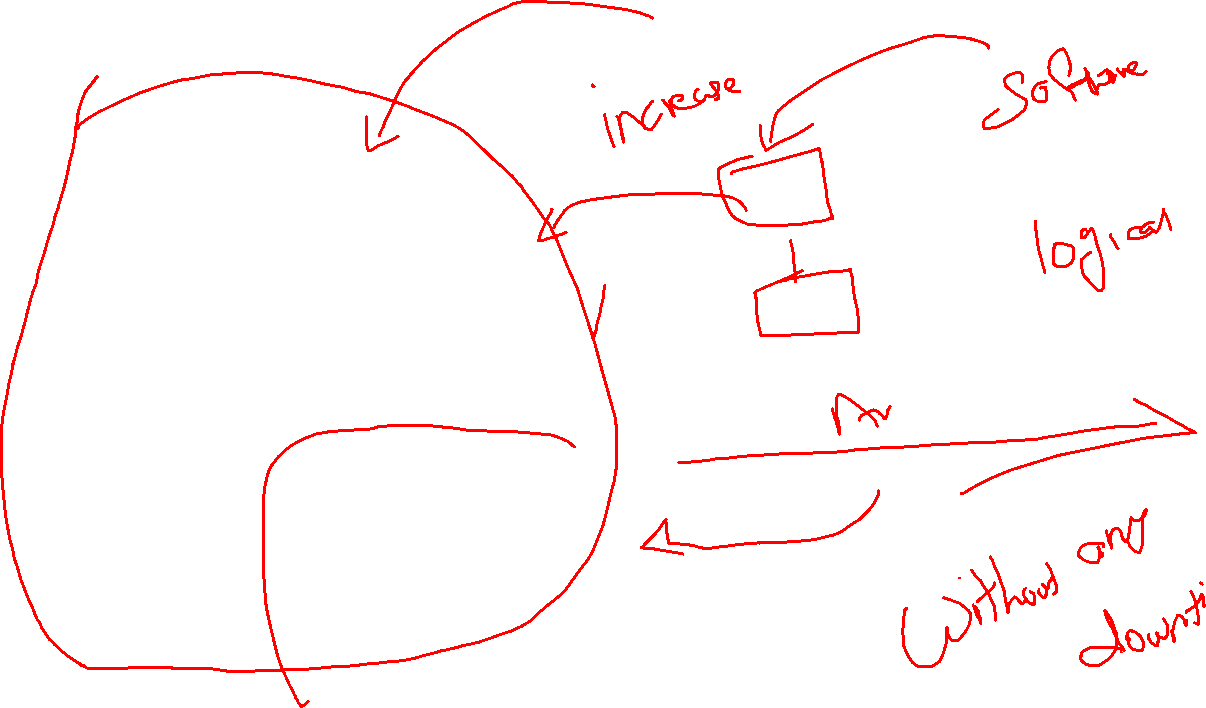 increase
Software
logical
Av
without any
downti